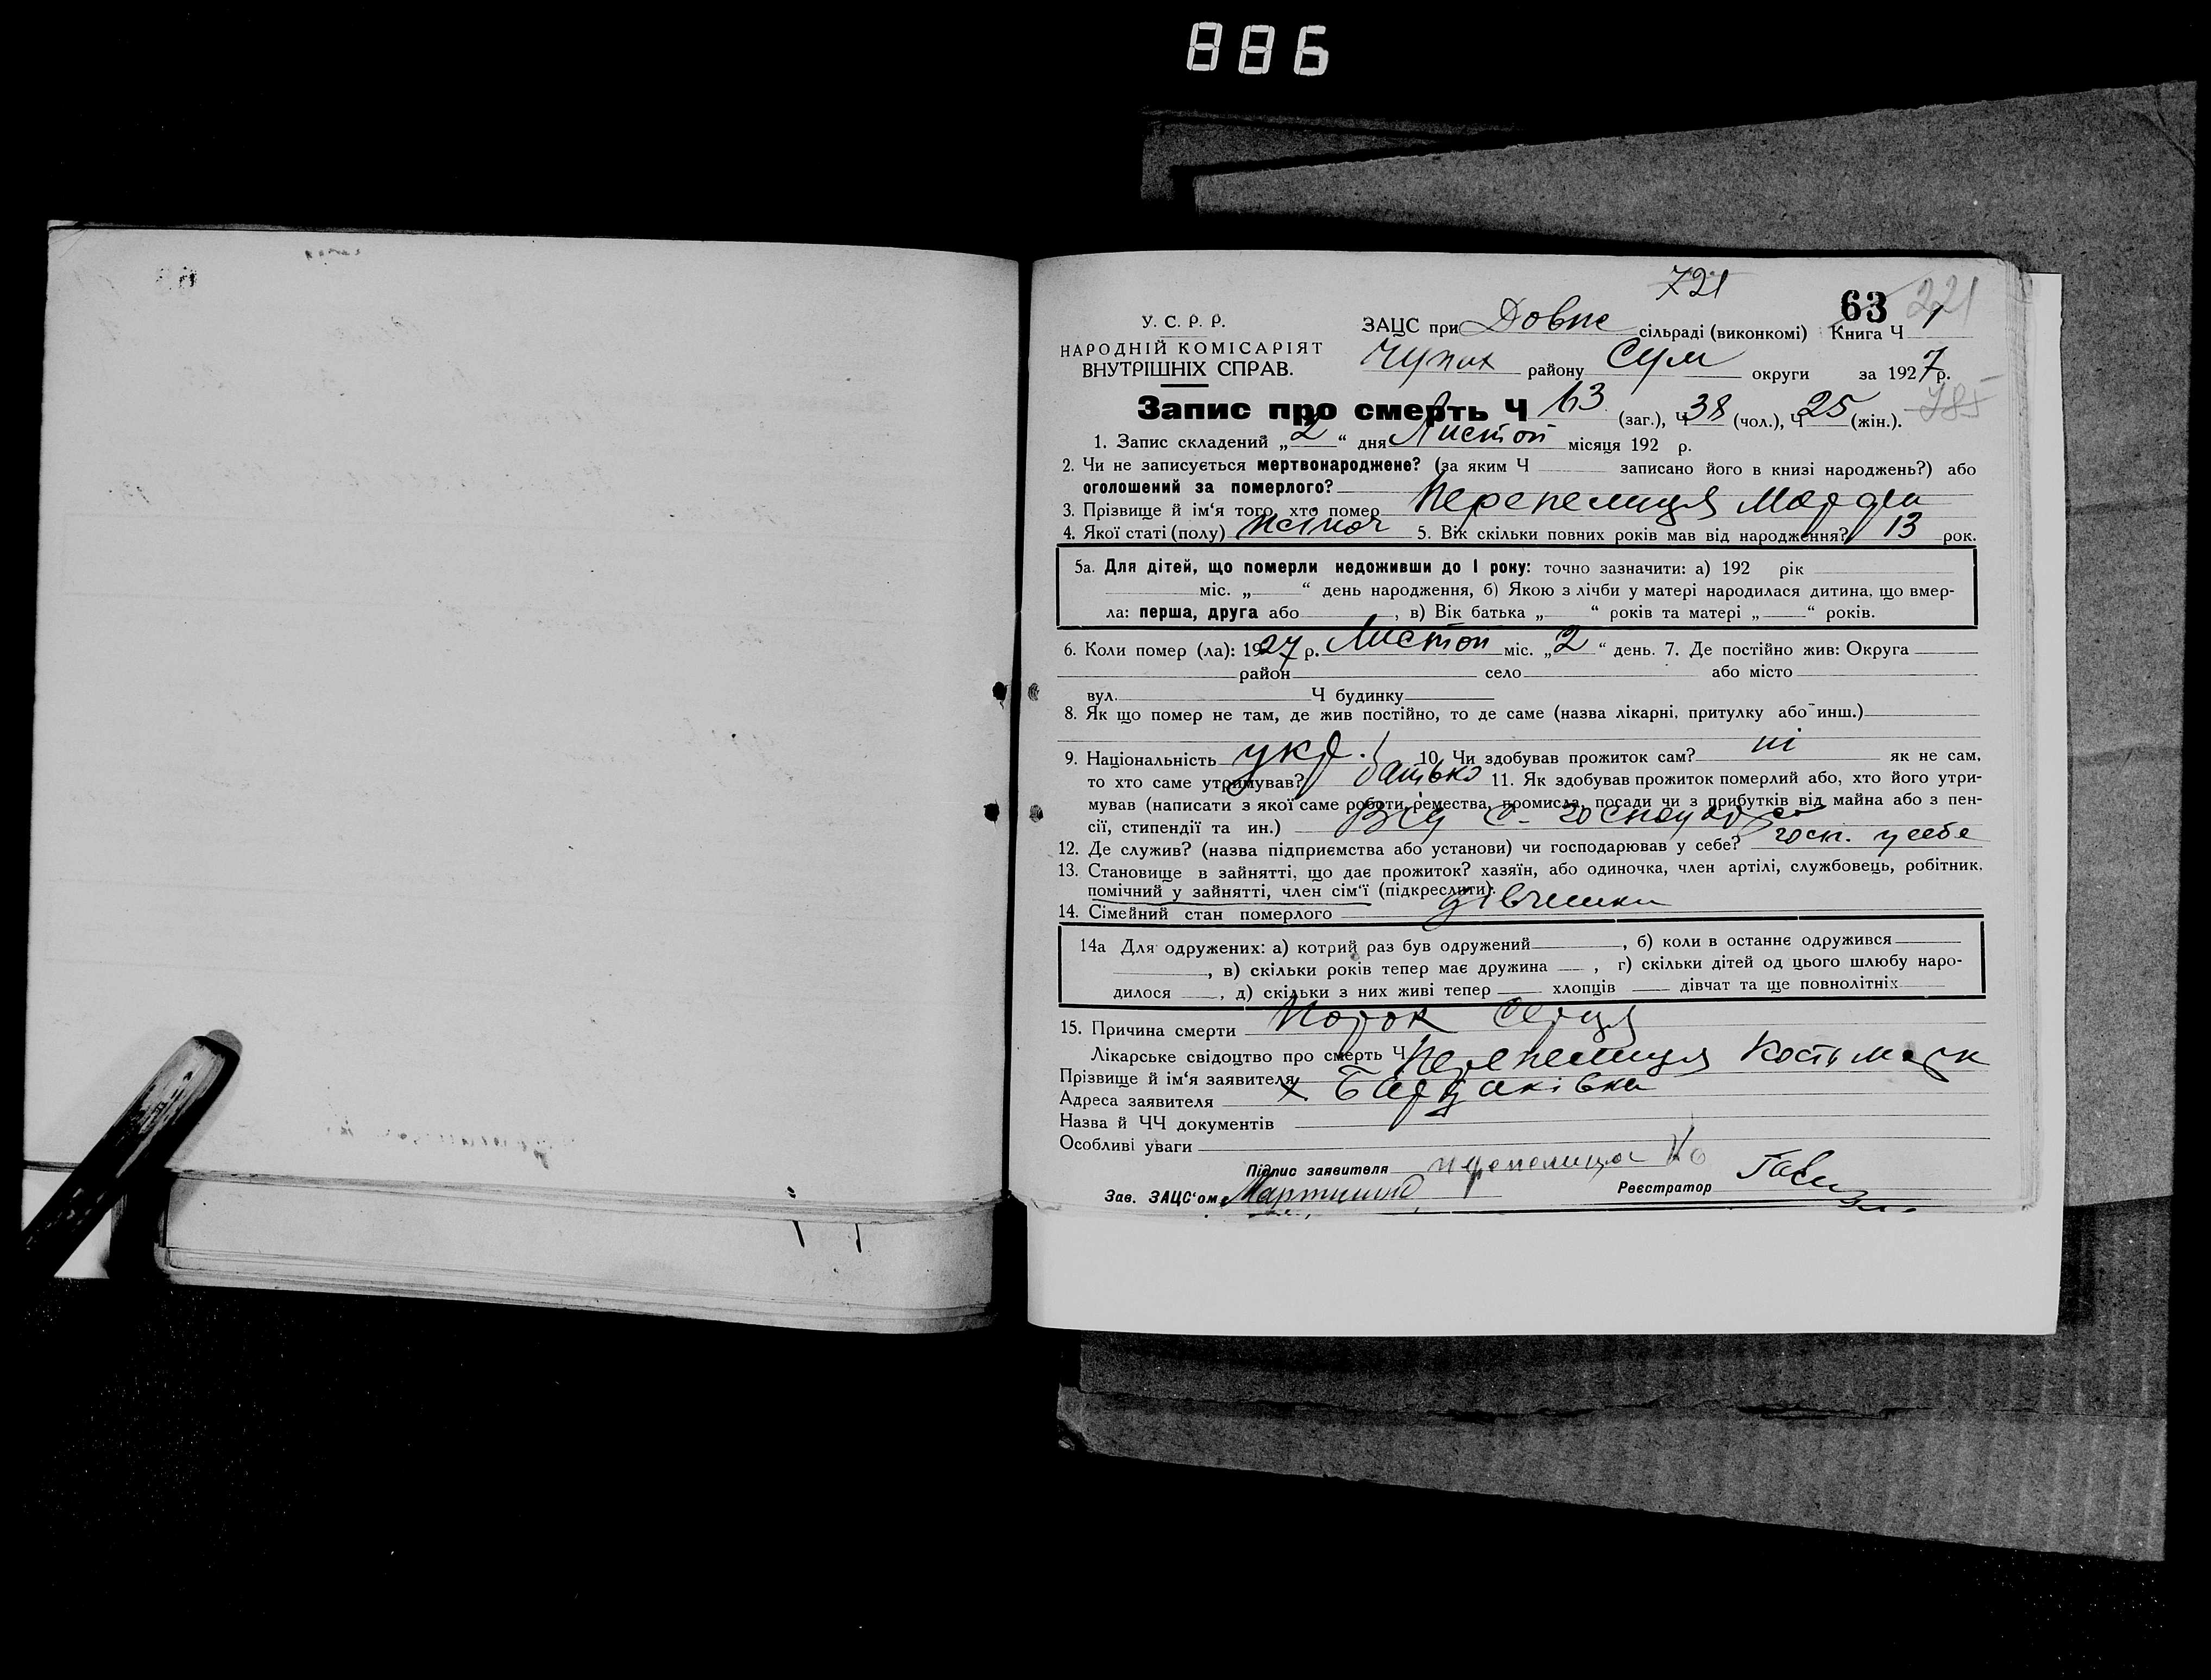 886
721
63 221
У. С. Р. Р.
ЗАЦС при Довже сільраді (виконкомі) Книга Ч 1
НАРОДНІЙ КОМІСАРІЯТ
ВНУТРІШНІХ СПРАВ.
Чупах району Сум округи за 1927 р.
Запис про смерть Ч 63 (заг.), Ч 38 (чол.), Ч 25 (жін.). 785
1. Запис складений „2“ дня Листоп місяця 192 р.
2. Чи не записується мертвонароджене? (за яким Ч записано його в книзі народжень?) або
оголошений за померлого?
3. Прізвище й ім‘я того, хто помер Перепелиця
4. Якої статі (полу) жіноч 5. Вік скільки повних років мав від народження? 13 рок.
5а. Для дітей, що померли недоживши до 1 року: точно зазначити: а) 192 рік
міс. „ “ день народження, б) Якою з лічби у матері народилася дитина, що вмер-
ла: перша, друга або , в) Вік батька „ “ років та матері „ “ років.
6. Коли помер (ла): 1927 р. Листоп міс. „2“ день. 7. Де постійно жив: Округа
район село або місто
вул. Ч будинку
8. Як що помер не там, де жив постійно, то де саме (назва лікарні, притулку або инш.)
9. Національність укр. 10. Чи здобував прожиток сам? ні як не сам,
то хто саме утримував? батько 11. Як здобував прожиток померлий або, хто його утри-
мував (написати з якої саме роботи, ремества, промисла, посади чи з прибутків від майна або з пен-
сії, стипендії та ин.) Від с-
12. Де служив? (назва підприємства або установи) чи господарював у себе? госп. у себе
13. Становище в зайнятті, що дає прожиток? хазяїн, або одиночка, член артілі, службовець, робітник,
помічний у зайнятті, член сім‘ї (підкреслити).
14. Сімейний стан померлого дівчинка
14а Для одружених: а) котрий раз був одружений , б) коли в останнє одружився
, в) скільки років тепер має дружина , г) скільки дітей од цього шлюбу наро-
дилося , д) скільки з них живі тепер хлопців дівчат та ще повнолітніх
15. Причина смерти Порок серця
Лікарське свідоцтво про смерть Ч
Прізвище й ім‘я заявителя Перепелиця Кость
Адреса заявителя х
Назва й ЧЧ документів
Особливі уваги
Підпис заявителя перепелица Ко
Зав. ЗАЦС‘ом Реєстратор